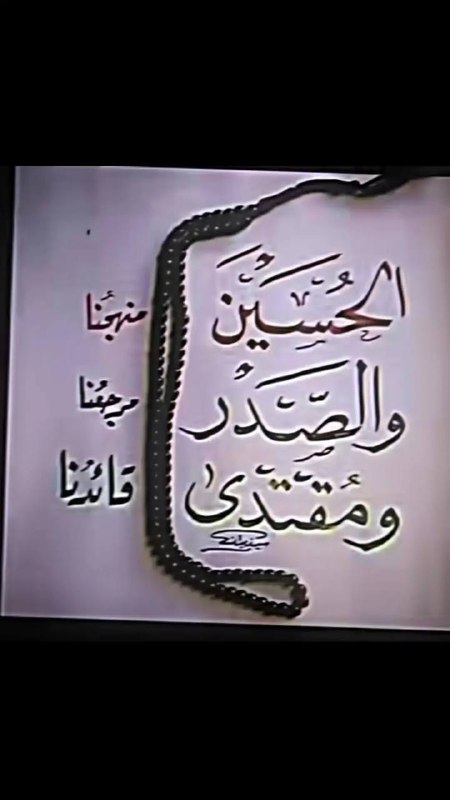 الحُسَيْن منهجُنا
والصَّدْر مرجعُنا
ومُقتدى قائدُنا